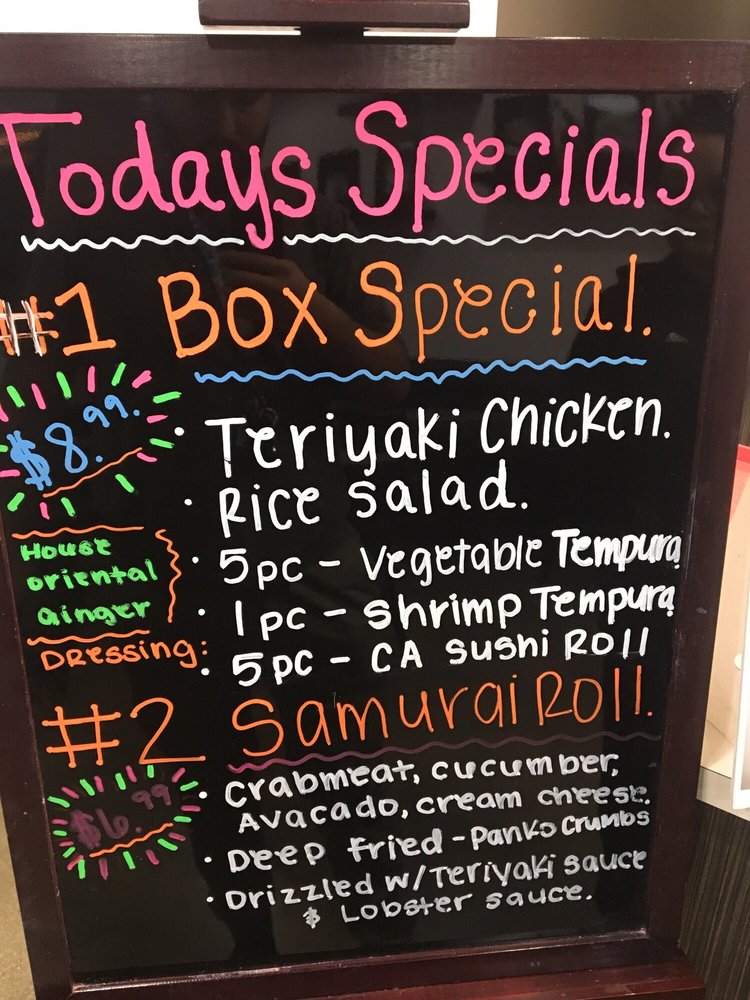 Todays Specials
#1 Box Special.
$8.99.
• Teriyaki Chicken.
• Rice Salad.
House
oriental
Ginger
Dressing:
• 5pc - Vegetable Tempura
• 1pc - Shrimp Tempura
• 5pc - CA Sushi Roll
#2 Samurai Roll.
$6.99
• Crabmeat, cucumber,
Avacado, cream cheese.
• Deep fried - Panko Crumbs
• Drizzled w/Teriyaki Sauce
& Lobster sauce.